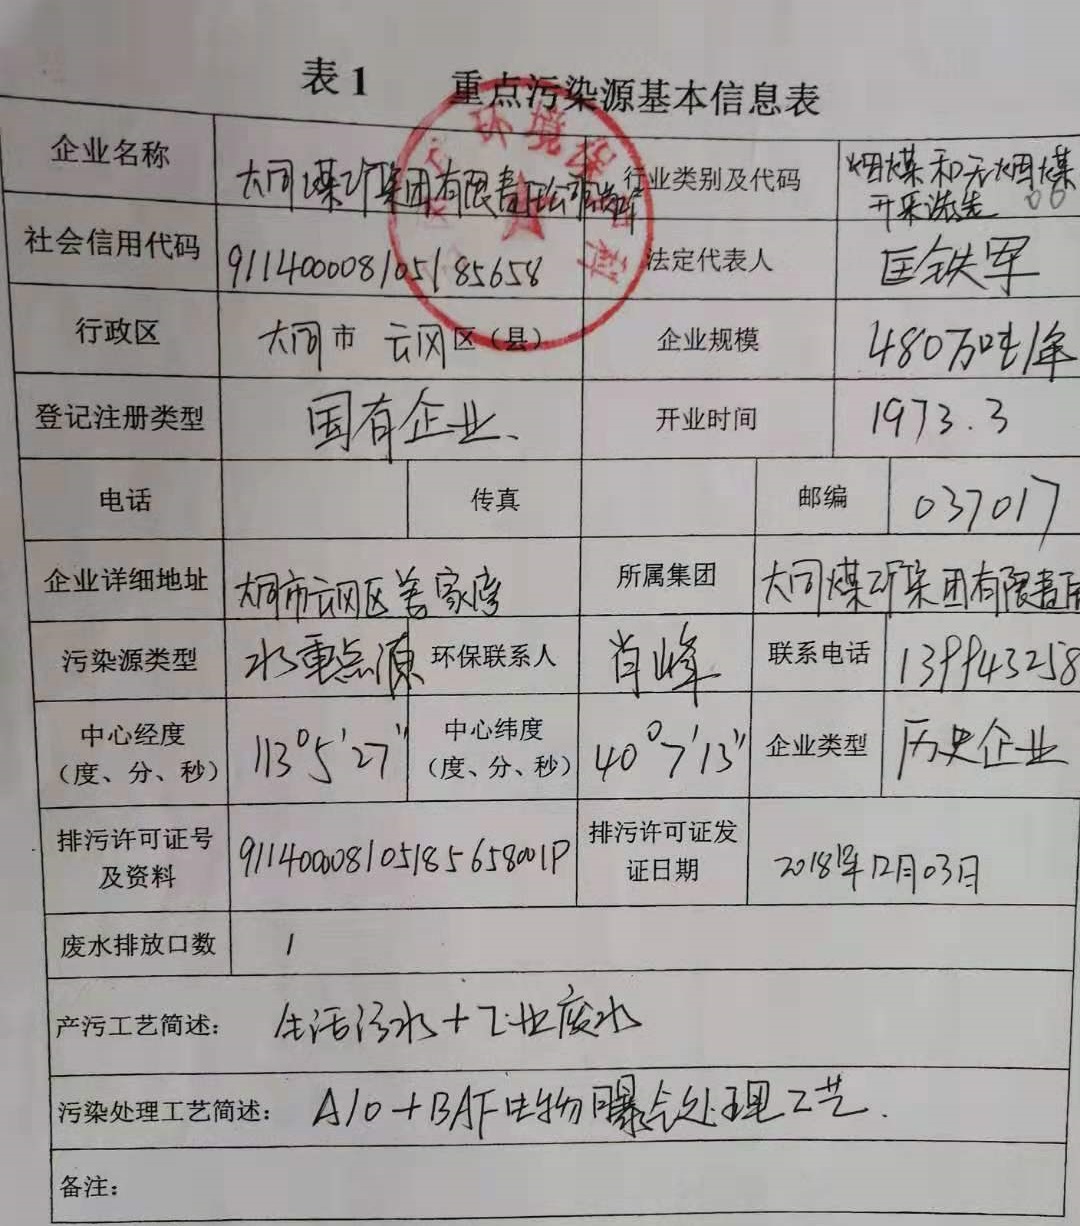 表1 重点污染源基本信息表
企业名称 大同煤矿集团有限责任公司 行业类别及代码 烟煤和无烟煤
开采洗选
社会信用代码 911400008105185658 法定代表人 匡铁军
行政区 大同市 云冈区(县) 企业规模 480万吨/年
登记注册类型 国有企业、 开业时间 1973.3
电话 传真 邮编 037017
企业详细地址 大同市云冈区姜家湾 所属集团 大同煤矿集团有限责任
污染源类型 水重点源 环保联系人 肖峰 联系电话 139943258
中心经度
(度、分、秒) 113°5′27″ 中心纬度
(度、分、秒) 40°7′13″ 企业类型 历史企业
排污许可证号
及资料 911400008105185658001P 排污许可证发
证日期 2018年12月03日
废水排放口数 1
产污工艺简述: 生活污水+工业废水
污染处理工艺简述: A/O+BAF生物曝气处理工艺.
备注:
环境保
科